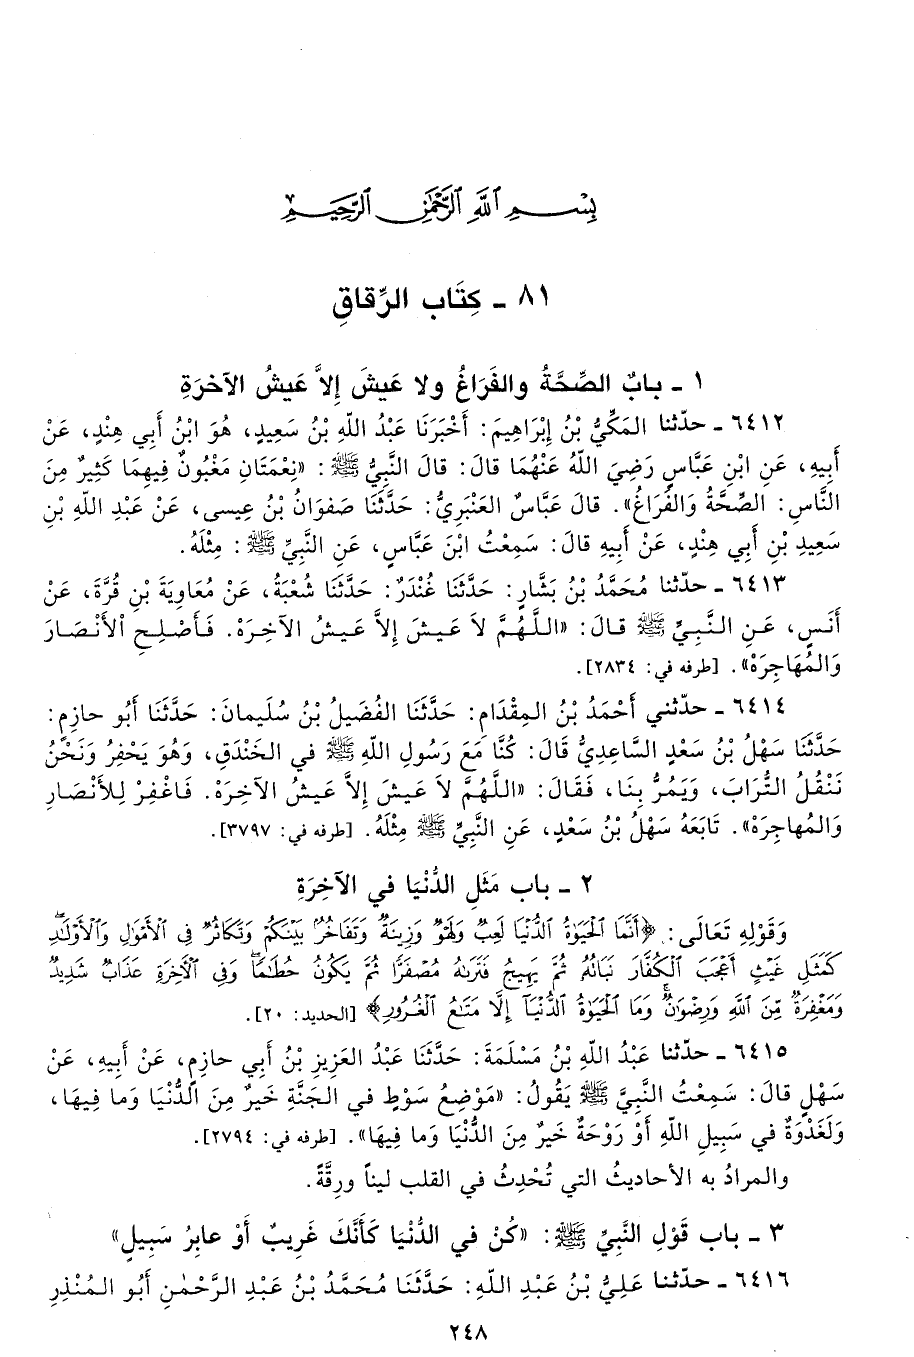 بِسْمِ اللَّهِ الرَّحْمَٰنِ الرَّحِيمِ
٨١ ـ كِتَاب الرِّقاقِ
١ ـ بابٌ الصِّحَّةُ والفَرَاغُ ولا عَيشَ إِلاَّ عَيشُ الآخرَةِ
٦٤١٢ ـ حدّثنا المَكِّيُّ بْنُ إِبْرَاهِيمَ: أَخْبَرَنَا عَبْدُ اللّهِ بْنُ سَعِيدٍ، هُوَ ابْنُ أَبِي هِنْدٍ، عَنْ
أَبِيهِ، عَنِ ابْنِ عَبَّاسٍ رَضِيَ اللّهُ عَنْهُمَا قالَ: قالَ النَّبِيُّ ﷺ: «نِعْمَتَانِ مَغْبُونٌ فِيهِمَا كَثِيرٌ مِنَ
النَّاسِ: الصِّحَّةُ وَالفَرَاغُ». قالَ عَبَّاسٌ العَنْبَرِيُّ: حَدَّثَنَا صَفوَانُ بْنُ عِيسى، عَنْ عَبْدِ اللهِ بْنِ
سَعِيدِ بْنِ أَبِي هِنْدٍ، عَنْ أَبِيهِ قالَ: سَمِعْتُ ابْنَ عَبَّاسٍ، عَنِ النَّبِيِّ ﷺ: مِثْلَهُ.
٦٤١٣ ـ حدّثنا مُحَمَّدُ بْنُ بَشَّارٍ: حَدَّثَنَا غُنْدَرٌ: حَدَّثَنَا شُعْبَةُ، عَنْ مُعَاوِيَةَ بْنِ قُرَّةَ، عَنْ
أَنَسٍ، عَنِ النَّبِيِّ ﷺ قالَ: «اللَّهُمَّ لاَ عَيشَ إِلاَّ عَيشُ الآخِرَهْ. فَأَصْلِحِ الأَنْصَارَ
وَالمُهَاجِرَهْ». [طرفه في: ٢٨٣٤].
٦٤١٤ ـ حدّثني أَحْمَدُ بْنُ المِقْدَامِ: حَدَّثَنَا الفُضَيلُ بْنُ سُلَيمانَ: حَدَّثَنَا أَبُو حازِمٍ:
حَدَّثَنَا سَهْلُ بْنُ سَعْدٍ السَّاعِدِيُّ قَالَ: كُنَّا مَعَ رَسُولِ اللّهِ ﷺ في الخَنْدَقِ، وَهُوَ يَحْفِرُ وَنَحْنُ
نَنْقُلُ التُّرَابَ، وَيَمُرُّ بِنَا، فَقَالَ: «اللَّهُمَّ لاَ عَيشَ إِلاَّ عَيشُ الآخِرَهْ. فَاغْفِرْ لِلأَنْصَارِ
وَالمُهاجِرَهْ». تَابَعَهُ سَهْلُ بْنُ سَعْدٍ، عَنِ النَّبِيِّ ﷺ مِثْلَهُ. [طرفه في: ٣٧٩٧].
٢ ـ باب مَثَلِ الدُّنْيَا في الآخِرَةِ
وَقَوْلِهِ تَعَالَى: ﴿أَنَّمَا الْحَيَوٰةُ الدُّنْيَا لَعِبٌ وَلَهْوٌ وَزِينَةٌ وَتَفَاخُرٌ بَيْنَكُمْ وَتَكَاثُرٌ فِي الْأَمْوَٰلِ وَالْأَوْلَٰدِ
كَمَثَلِ غَيْثٍ أَعْجَبَ الْكُفَّارَ نَبَاتُهُ ثُمَّ يَهِيجُ فَتَرَىٰهُ مُصْفَرًّا ثُمَّ يَكُونُ حُطَٰمًا وَفِي الْآخِرَةِ عَذَابٌ شَدِيدٌ
وَمَغْفِرَةٌ مِّنَ اللَّهِ وَرِضْوَٰنٌ وَمَا الْحَيَوٰةُ الدُّنْيَا إِلَّا مَتَٰعُ الْغُرُورِ﴾ [الحديد: ٢٠].
٦٤١٥ ـ حدّثنا عَبْدُ اللّهِ بْنُ مَسْلَمَةَ: حَدَّثَنَا عَبْدُ العَزِيزِ بْنُ أَبِي حازِمٍ، عَنْ أَبِيهِ، عَنْ
سَهْلٍ قالَ: سَمِعْتُ النَّبِيَّ ﷺ يَقُولُ: «مَوْضِعُ سَوْطٍ في الجَنَّةِ خَيرٌ مِنَ الدُّنْيَا وَما فِيهَا،
وَلَغَدْوَةٌ في سَبِيلِ اللّهِ أَوْ رَوْحَةٌ خَيرٌ مِنَ الدُّنْيَا وَما فِيهَا». [طرفه في: ٢٧٩٤].
والمرادُ به الأحاديثُ التي تُحْدِثُ في القلب ليناً ورِقَّةً.
٣ ـ باب قَوْلِ النَّبِيِّ ﷺ: «كُنْ في الدُّنْيَا كَأَنَّكَ غَرِيبٌ أَوْ عابِرُ سَبِيلٍ»
٦٤١٦ ـ حدّثنا عَلِيُّ بْنُ عَبْدِ اللّهِ: حَدَّثَنَا مُحَمَّدُ بْنُ عَبْدِ الرَّحْمٰنِ أَبُو المُنْذِرِ
٢٤٨